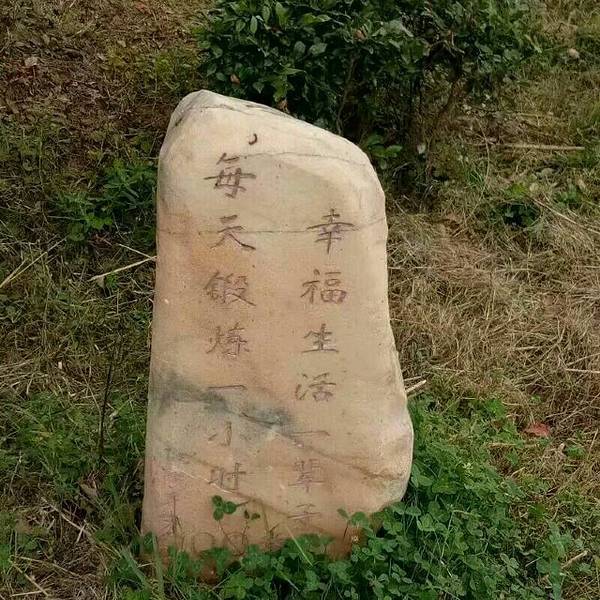 每天锻炼一小时
幸福生活一辈子